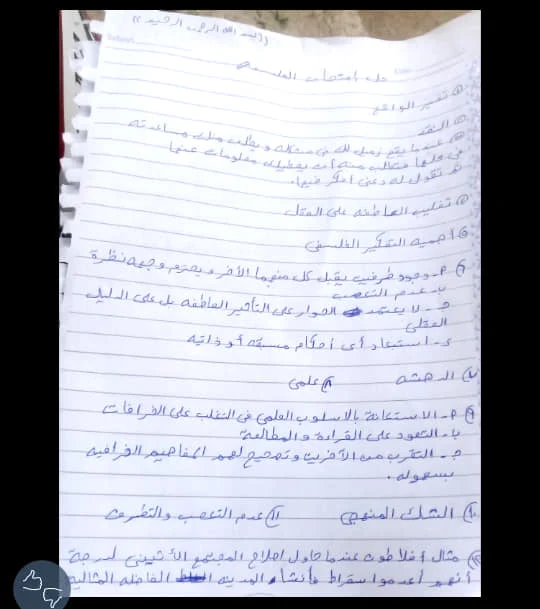 ((بسم الله الرحمن الرحيم))
حل امتحان الفلسفة
① تفسير الواقع
② النقد
③ عندما يقع زميل لك فى مشكله ويطلب منك مساعدته
فى حلها فتطلب منه أن يعطيك معلومات عنها
و تقول له دعنى أفكر فيها.
تغليب العاطفه على العقل
أهمية التفكير الفلسفى
⑥ م- وجود طرفين يقبل كل منهما الآخر ويحترم وجهه نظرة
ب- عدم التعصب
جـ- لا يعتمد الحوار على التأثير العاطفه بل على الدليل
العقلى
د- استبعاد أى أحكام مسبقه أو ذاتيه
⑦ الدهشه ⑧ علمى
⑨ م- الاستعانة بالاسلوب العلمى فى التغلب على الخرافات
ب- التعود على القراءة والمطالعة
جـ- التقرب من الآخرين وتصحيح لهم المفاهيم الخرافيه
بسهوله.
⑩ الشك المنهجى ⑪ عدم التعصب والتطرف
⑫ مثال أفلاطون عندما حاول اصلاح المجتمع الأثينى لدرجة
أنهم أعدموا سقراط فأنشأ المدينه الفاضله المثاليه